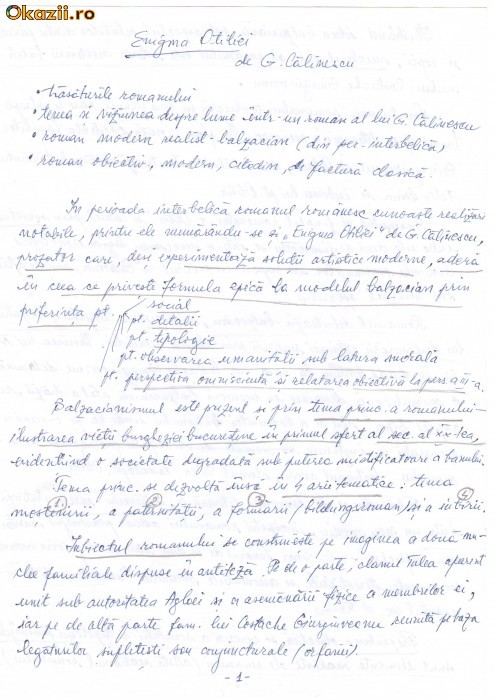 Okazii.ro
Enigma Otiliei
de G. Călinescu
• trăsăturile romanului
• tema și viziunea despre lume într-un roman al lui G. Călinescu
• roman modern realist-balzacian (din per. interbelică)
• roman obiectiv, modern, citadin, de factură clasică.
În perioada interbelică romanul românesc cunoaște realizări
notabile, printre ele numărându-se și „Enigma Otiliei" de G. Călinescu,
prozator care, deși experimentează soluții artistice moderne, aderă
în ceea ce privește formula epică la modelul balzacian prin
preferința pt. social
pt. detalii
pt. tipologie
pt. observarea umanității sub latura morală
pt. perspectiva omniscientă și relatarea obiectivă la pers. a III-a.
Balzacianismul este prezent și prin tema princ. a romanului-
ilustrarea vieții burgheziei bucureștene în primul sfert al sec. al XX-lea,
evidențiind o societate degradată sub puterea mistificatoare a banului.
Tema princ. se dezvoltă însă în 4 arii tematice: tema
1 2 3 4
moștenirii, a paternității, a formării (bildungsroman) și a iubirii.
Subiectul romanului se construiește pe imaginea a două nu-
clee familiale dispuse în antiteză. Pe de o parte, clanul Tulea aparent
unit sub autoritatea Aglaei și a asemănării fizice a membrilor ei,
iar pe de altă parte fam. lui Costache Giurgiuveanu reunită pe baza
legăturilor sufletești sau conjuncturale (orfanii).
- 1 -